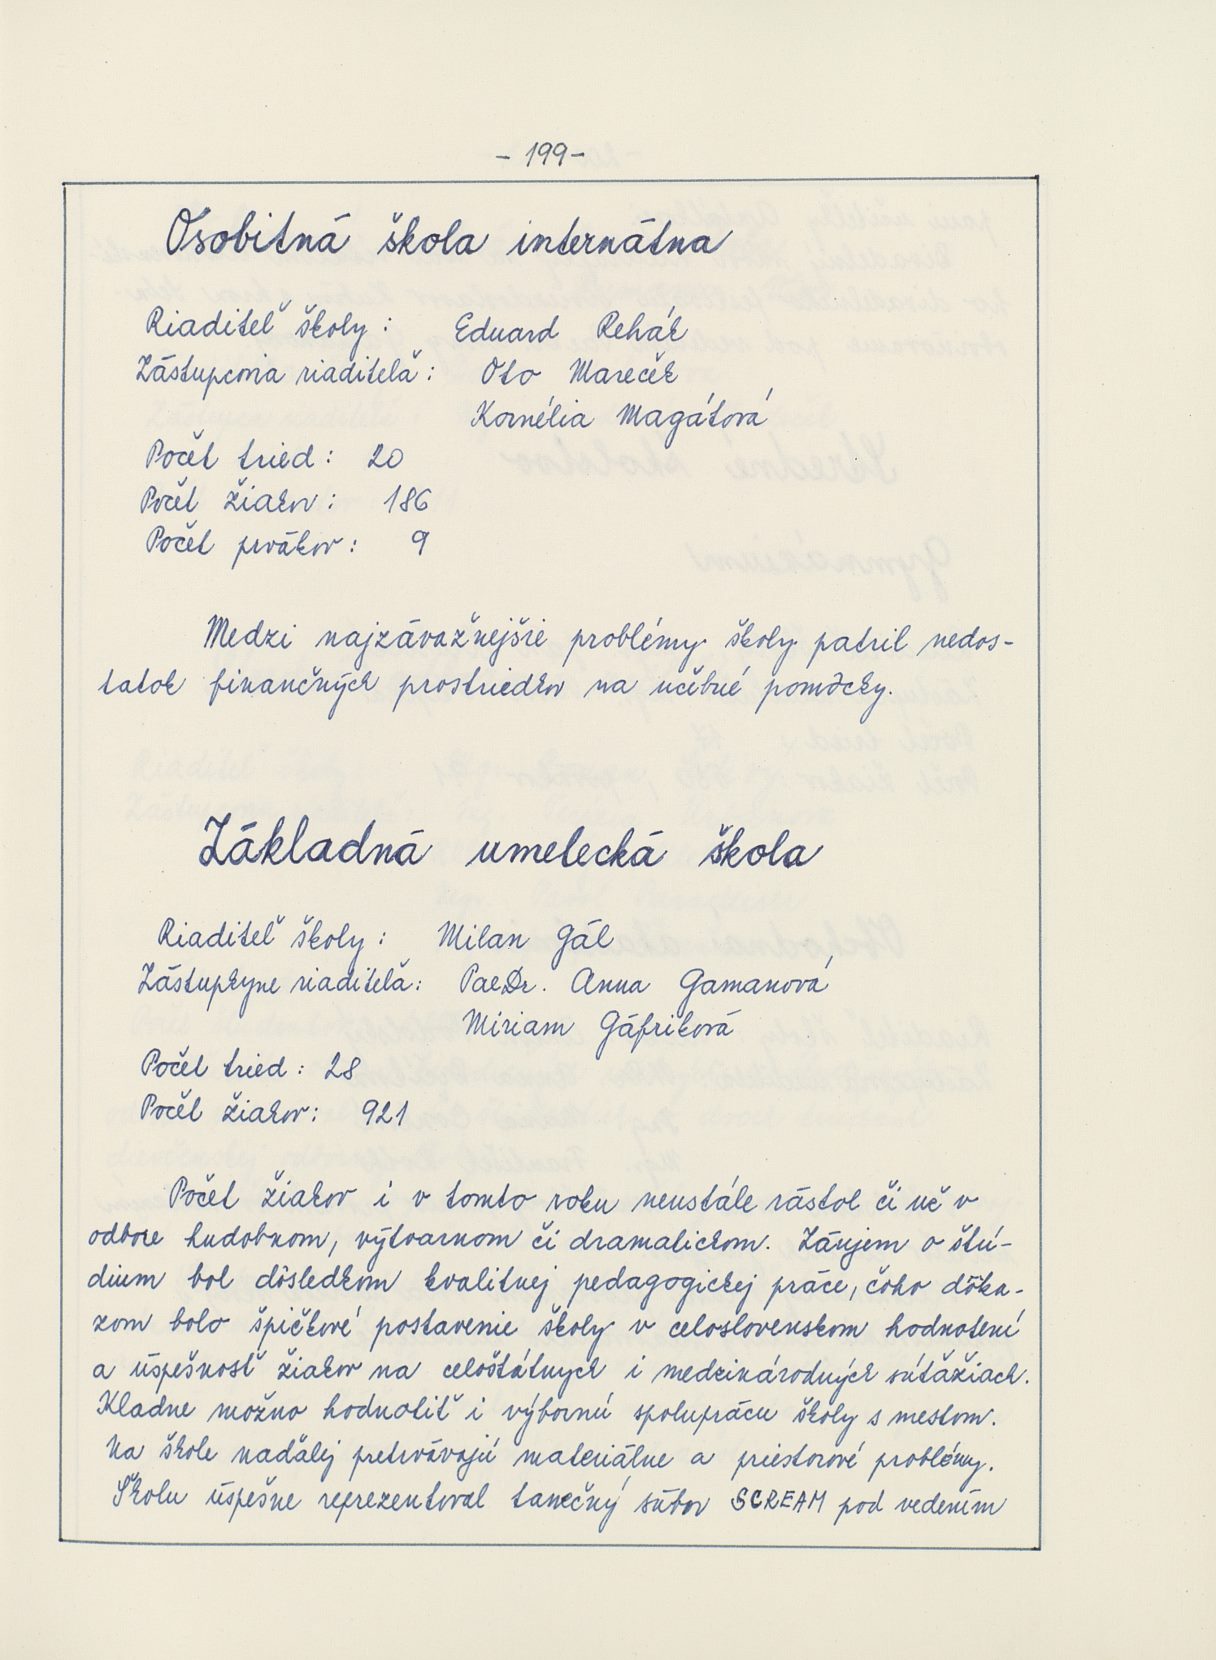 - 199 -
Osobitná škola internátna
Riaditeľ školy : Eduard Rehák
Zástupcovia riaditeľa : Oto Mareček
Kornélia Magátová
Počet tried : 20
Počet žiakov : 186
Počet prvákov : 9
Medzi najzávažnejšie problémy školy patril nedos-
tatok finančných prostriedkov na učebné pomôcky.
Základná umelecká škola
Riaditeľ školy : Milan Gál
Zástupkyne riaditeľa : PaeDr. Anna Gamanová
Miriam Gáfriková
Počet tried : 28
Počet žiakov : 921
Počet žiakov i v tomto roku neustále rástol či už v
odbore hudobnom, výtvarnom či dramatickom. Záujem o štú-
dium bol dôsledkom kvalitnej pedagogickej práce, čoho dôka-
zom bolo špičkové postavenie školy v celoslovenskom hodnotení
a úspešnosť žiakov na celoštátnych i medzinárodných súťažiach.
Kladne možno hodnotiť i výbornú spoluprácu školy s mestom.
Na škole naďalej pretrvávajú materiálne a priestorové problémy.
Školu úspešne reprezentoval tanečný súbor SCREAM pod vedením